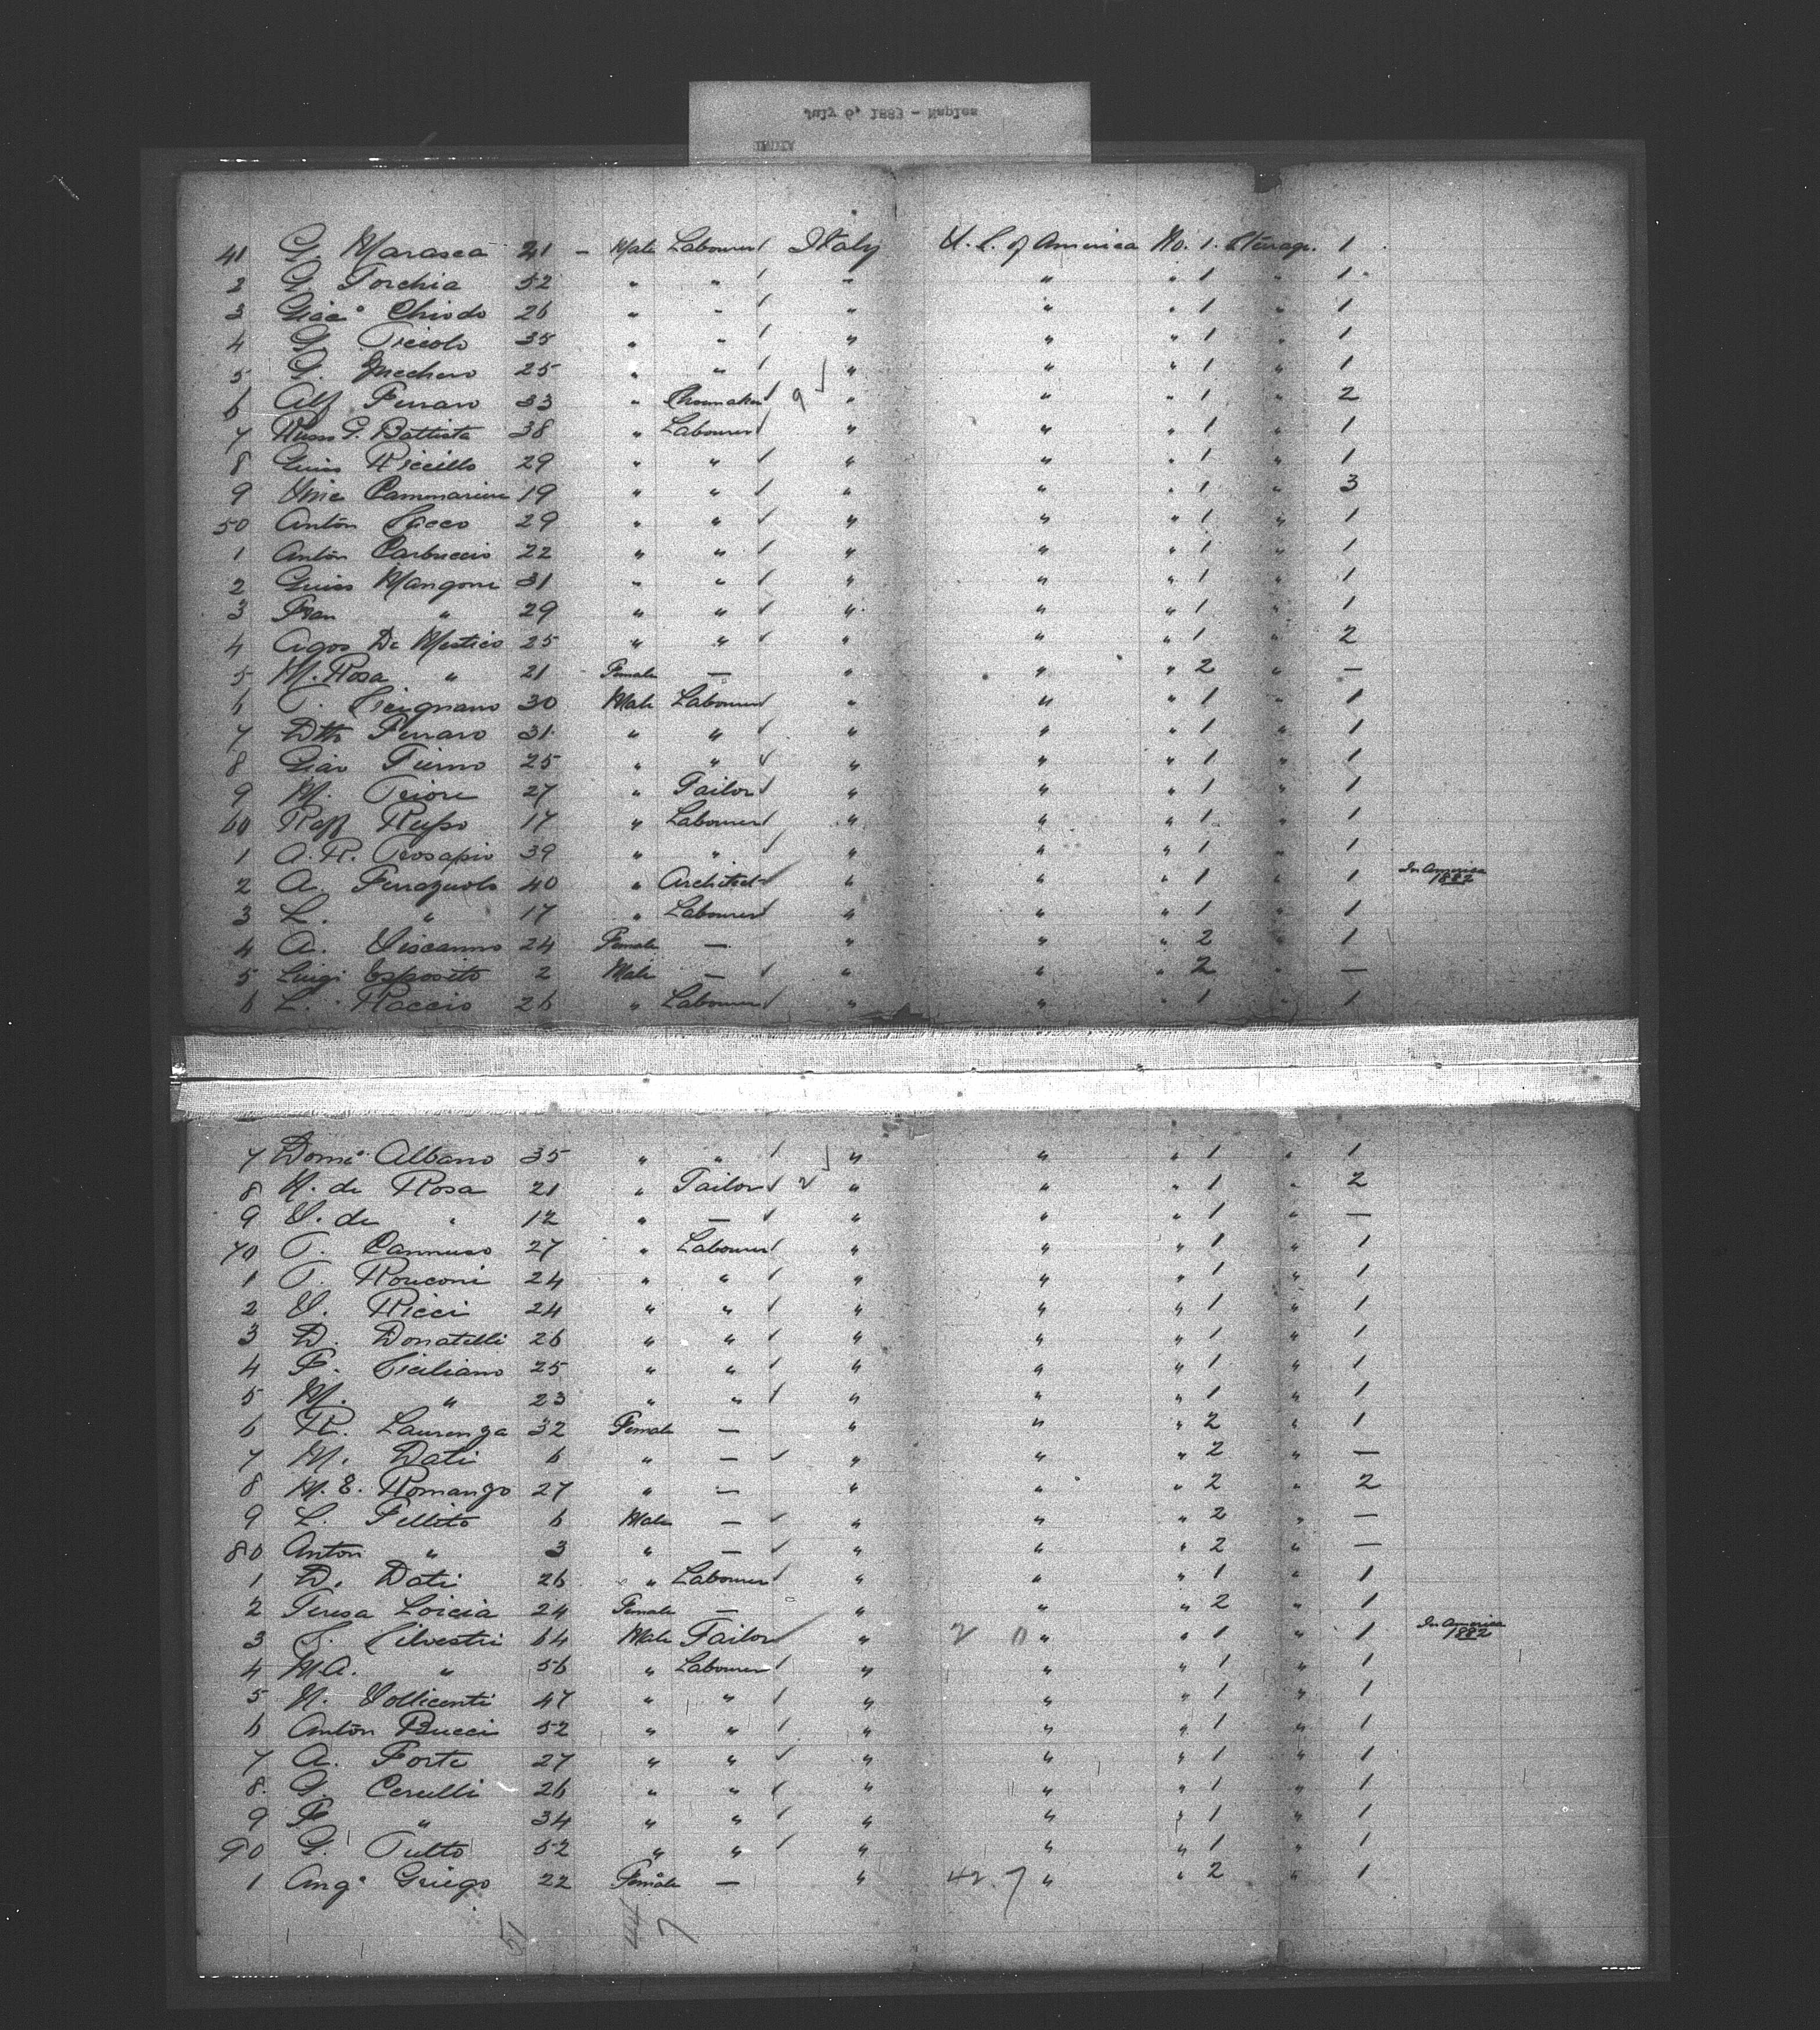 July 6, 1883 - Naples
INDIA
41 G. Marasca 21 - Male Labourer Italy U.S. of America No. 1. Steerage. 1
2 G. Torchia 52 " " " " " 1 " 1
3 Giac° Chiodo 26 " " " " " 1 " 1
4 G. Piccolo 35 " " " " " 1 " 1
5 G. 25 " " " " " 1 " 1
6 Alf Ferraro 33 " Shoemaker 9 " " " 1 " 2
7 Russo G. Battista 38 " Labourer " " " 1 " 1
8 Guis Riccillo 29 " " " " " 1 " 1
9 Vinc Cammarine 19 " " " " " 1 " 3
50 Anton Sacco 29 " " " " " 1 " 1
1 Anton Carbuccio 22 " " " " " 1 " 1
2 Guis Mangone 31 " " " " " 1 " 1
3 Fran " 29 " " " " " 1 " 1
4 Agos De Mestico 25 " " " " " 1 " 2
5 M. Rosa " 21 - Female — " " " 2 " —
6 P. Sicignano 30 Male Labourer " " " 1 " 1
7 Dtto Ferraro 31 " " " " " 1 " 1
8 Giov Fiermo 25 " " " " " 1 " 1
9 M. Priore 27 " Tailor " " " 1 " 1
60 Raff Rufso 17 " Labourer " " " 1 " 1
1 A. R. Prosapio 39 " " " " " 1 " 1
2 A. Ferragnolo 40 " Architect " " " 1 " 1 In America 1882
3 L. " 17 " Labourer " " " 1 " 1
4 A. Viscanno 24 Female — " " " 2 " 1
5 Luigi Esposito 2 Male — " " " 2 " —
6 L. Raccio 26 " Labourer " " " 1 " 1
7 Domc° Albano 35 " " " " " 1 " 1
8 N. de Rosa 21 " Tailor 2 " " " 1 " 2
9 V. de " 12 " — " " " 1 " —
70 P. Cannuso 27 " Labourer " " " 1 " 1
1 P. Ronconi 24 " " " " " 1 " 1
2 V. Ricci 24 " " " " " 1 " 1
3 D. Donatelli 26 " " " " " 1 " 1
4 F. Siciliano 25 " " " " " 1 " 1
5 M. " 23 " " " " " 1 " 1
6 R. Laurenza 32 Female — " " " 2 " 1
7 M. Dati 6 " — " " " 2 " —
8 M. E. Romango 27 " — " " " 2 " 2
9 L. Pellito 6 Male — " " " 2 " —
80 Anton " 3 " — " " " 2 " —
1 D. Dati 26 " Labourer " " " 1 " 1
2 Teresa Loicia 24 Female — " " " 2 " 1
3 S. Silvestri 64 Male Tailor " 2 0 " " 1 " 1 In America 1882
4 M.A. " 56 " Labourer " " " 1 " 1
5 N. Vollicenti 47 " " " " " 1 " 1
6 Anton Bucci 52 " " " " " 1 " 1
7 A. Forte 27 " " " " " 1 " 1
8. G. Cerulli 26 " " " " " 1 " 1
9 F " 34 " " " " " 1 " 1
90 G. Tulto 52 " " " " " 1 " 1
1 Ang° Griego 22 Female — " 42. 7 " " 2 " 1
51 44 7